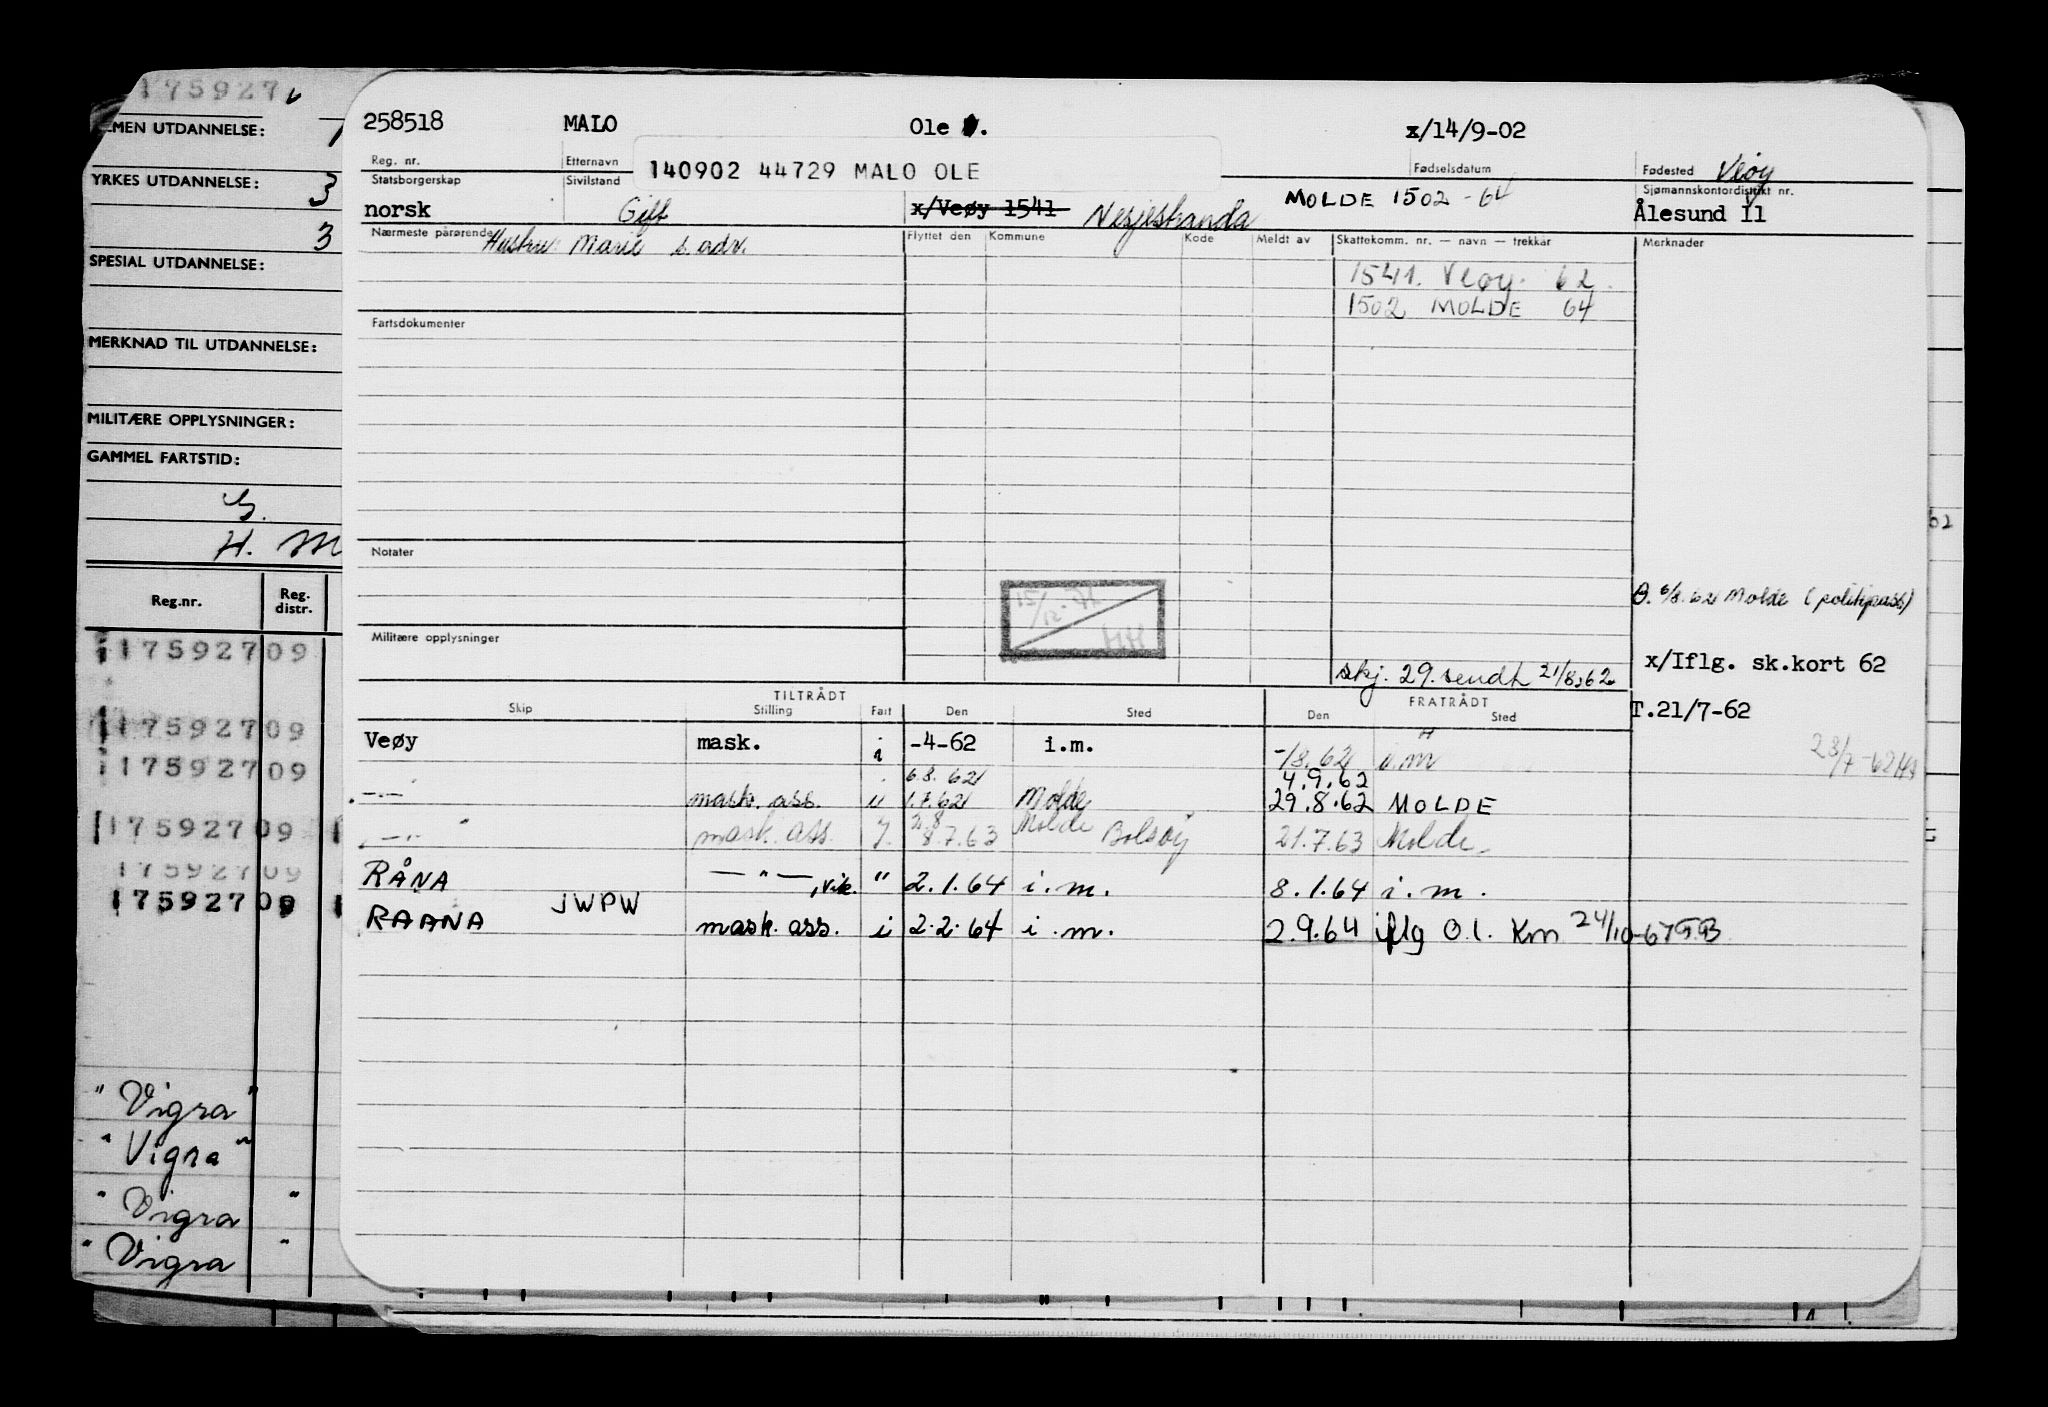 175927
ALMEN UTDANNELSE:
YRKES UTDANNELSE: 3
3
SPESIAL UTDANNELSE:
MERKNAD TIL UTDANNELSE:
MILITÆRE OPPLYSNINGER:
GAMMEL FARTSTID:
H. M
Reg.nr. Reg. distr.
17592709
17592709
17592709
17592709
17592709
17592709
"Vigra"
"Vigra"
"Vigra "
"Vigra "
258518 MALO Ole x/14/9-02
Reg. nr. Etternavn 140902 44729 MALO OLE Fødselsdatum Fødested Veøy
Statsborgerskap Sivilstand MOLDE 1502 - 64 Sjømannskontordistrikt nr.
norsk Gift x/Veøy 1541 Nesjestranda Ålesund 11
Nærmeste pårørende Hustru: Marie s. adr. Flyttet den Kommune Kode Meldt av Skattekomm. nr. — navn — trekkår Merknader
1541. Veøy. 62.
1502 MOLDE 64
Fartsdokumenter
Notater
15/12-71
Militære opplysninger
6/8.62 Molde (politipass)
x/Iflg. sk.kort 62
skj. 29. sendt 21/8.62
T.21/7-62
TILTRÅDT FRATRÅDT
Skip Stilling Fart Den Sted Den Sted
Veøy mask. i -4-62 i.m. -/8.62 i.m
23/7-62
6.8.62 4.9.62
—"— mask. ass. u 1.7.62 Molde 29.8.62 MOLDE
—"— mask. ass. 8.7.63 Molde Bolsøy 21.7.63 Molde
RÅNA —"—, vik. " 2.1.64 i.m. 8.1.64 i.m.
RAANA JWPW mask. ass. i 2.2.64 i.m. 2.9.64 iflg O.l. Km 24/10-67